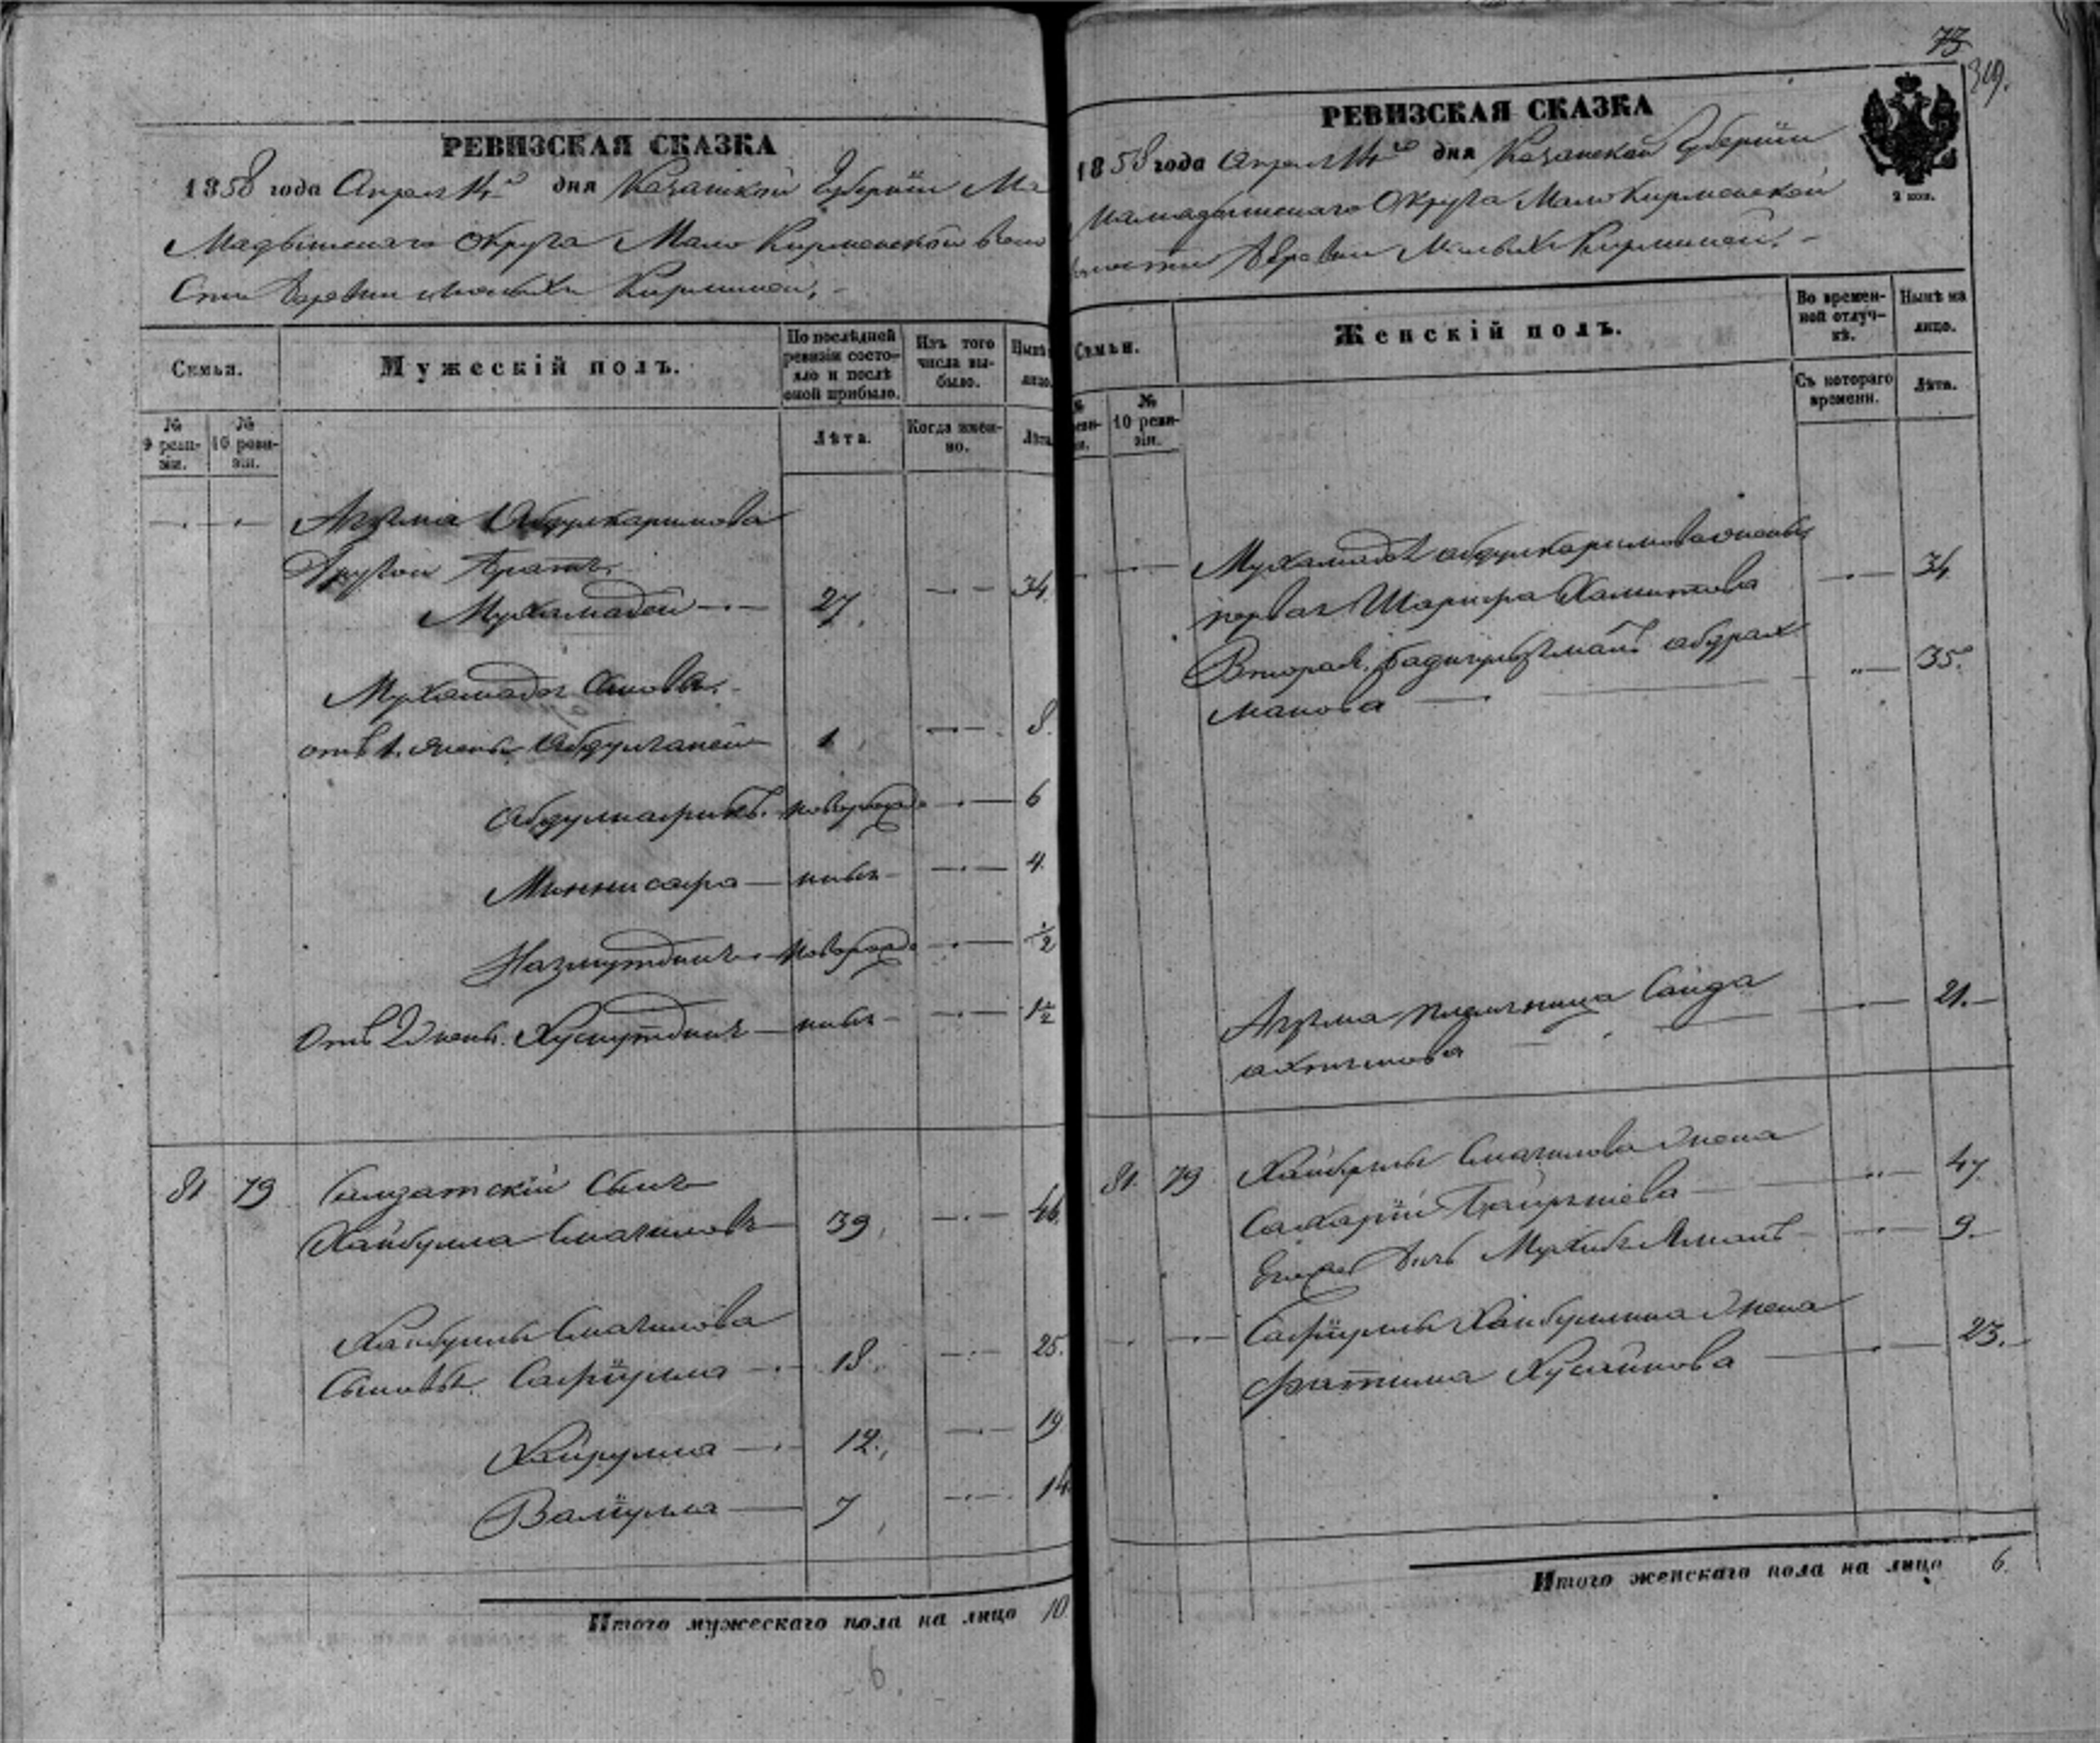 РЕВИЗСКАЯ СКАЗКА
1858 года Апреля 14го дня Казанской Губернiи Ма
Мадышскаго Округа Мало Кирменской воло
сти деревни Малыхъ Кирменей,
Семьи.
Мужескiй полъ.
По послѣдней ревизiи состояло и послѣ оной прибыло.
Изъ того числа выбыло.
Нынѣ
лицо.
№ 9 ревизiи.
№ 10 ревизiи.
Лѣта.
Когда именно.
Лѣта
Абдулкаримова
другой братъ
Мухамадей 27 34
Мухамадея сыновья
отъ 1. жены Абдулганей 1 8
новорожд 6
Миннисафа 4
Назмутдинъ новорожд ½
отъ 2 жены Хуснутдинъ 1½
81 79 сынъ
Хайбулла Смагиловъ 39 46
Хайбуллы Смагилова
сыновья Сафiулла 18 25
Хайрулла 12 19
Валiулла 7 14
Итого мужескаго пола на лицо 10
6.
73
319.
РЕВИЗСКАЯ СКАЗКА
2 коп.
1858 года Апреля 14го дня Казанской Губернiи
Мамадышскаго Округа Мало Кирменской
волости Деревни Малыхъ Кирменей.
Семьи.
Женскiй полъ.
Во временной отлучкѣ.
Нынѣ на лицо.
№ 10 ревизiи.
Съ котораго времени.
Лѣта.
Мухамадея Абдулкаримова жены
первая Хамитова 34
Вторая Абдрах
манова 35.
племянница Саида 21.
81. 79 Хайбуллы Смагилова жена
47
дочь 9.
Сафiуллы Хайбуллина жена
Фатима Хусаинова 23.
Итого женскаго пола на лицо 6.